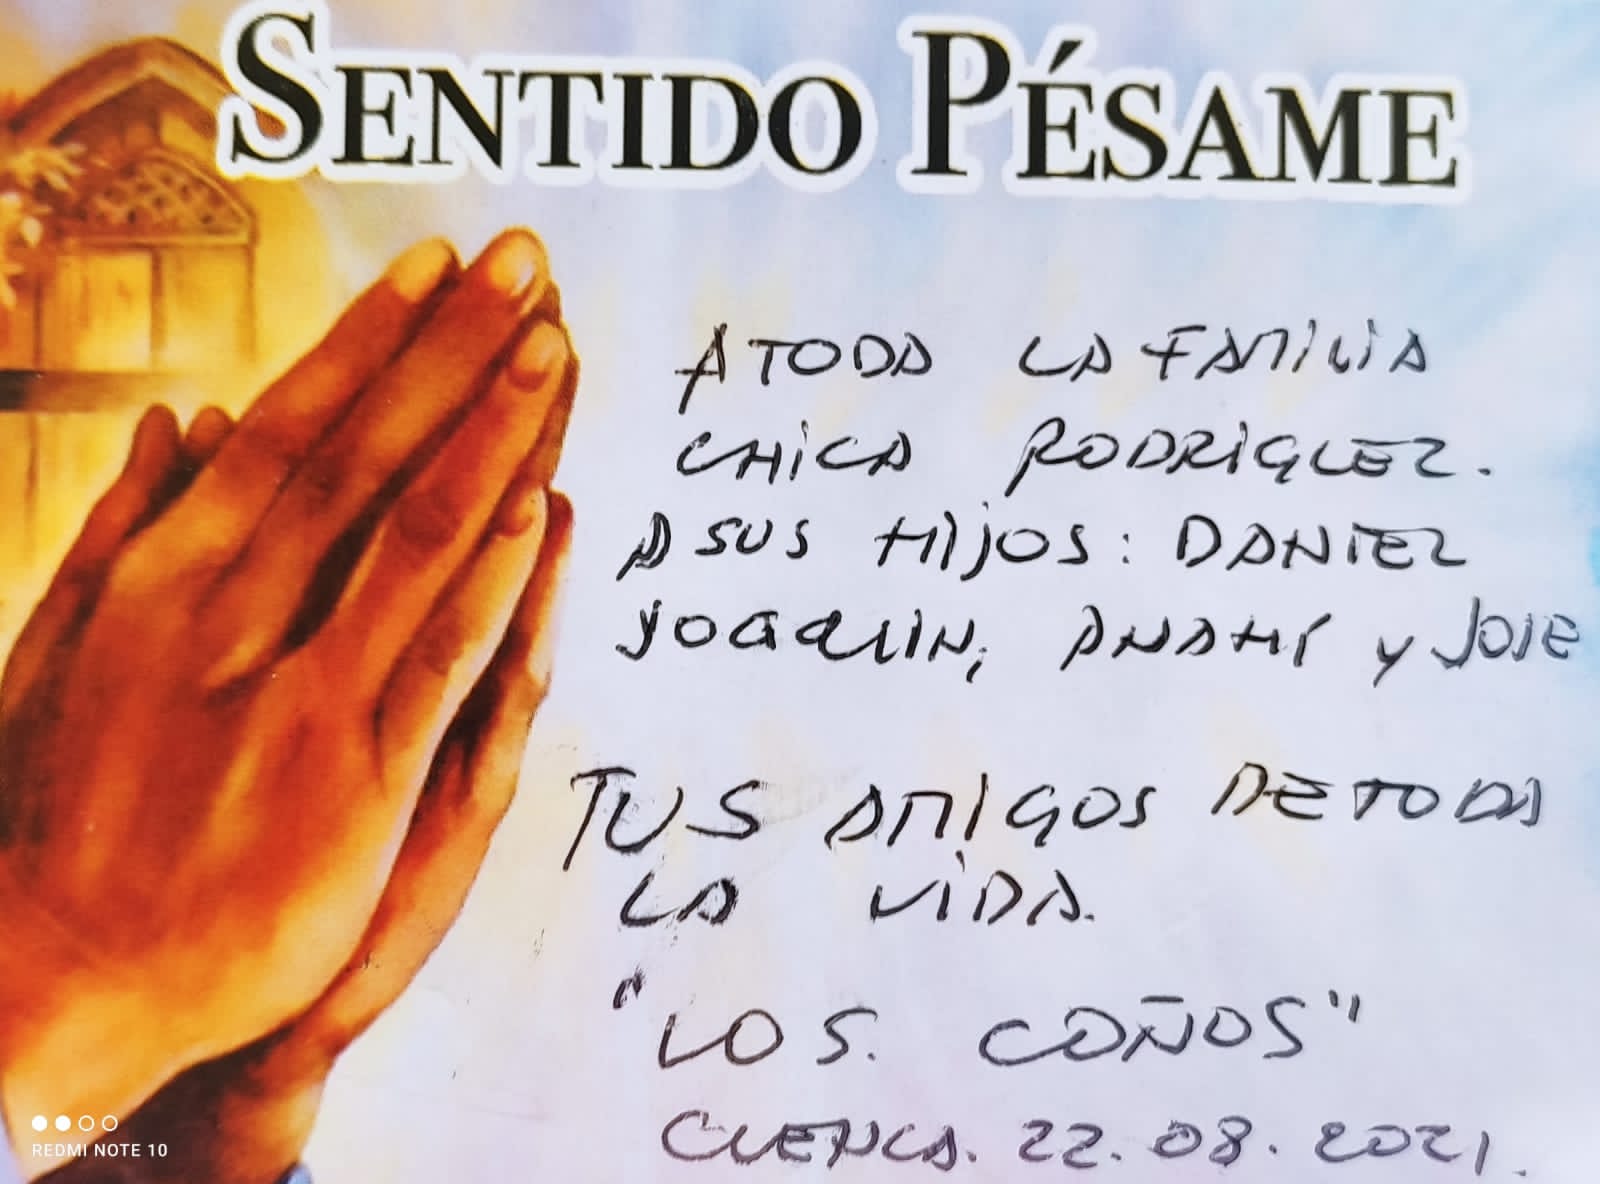 SENTIDO PÉSAME
A TODA LA FAMILIA
CHICA RODRIGUEZ.
A SUS HIJOS: DANIEL
JOAQUIN, ANAHÍ y JOSE
TUS AMIGOS DE TODA
LA VIDA.
"LOS. COÑOS"
CUENCA. 22.08.2021.
REDMI NOTE 10